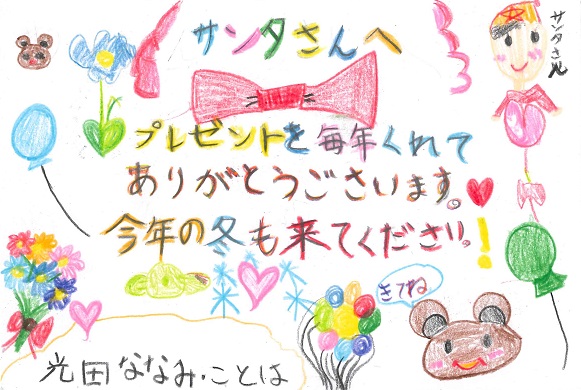 サンタさんへ
サンタさん
プレゼントを毎年くれて
ありがとうございます。
今年の冬も来てください。!
きてね
光田ななみ・ことは